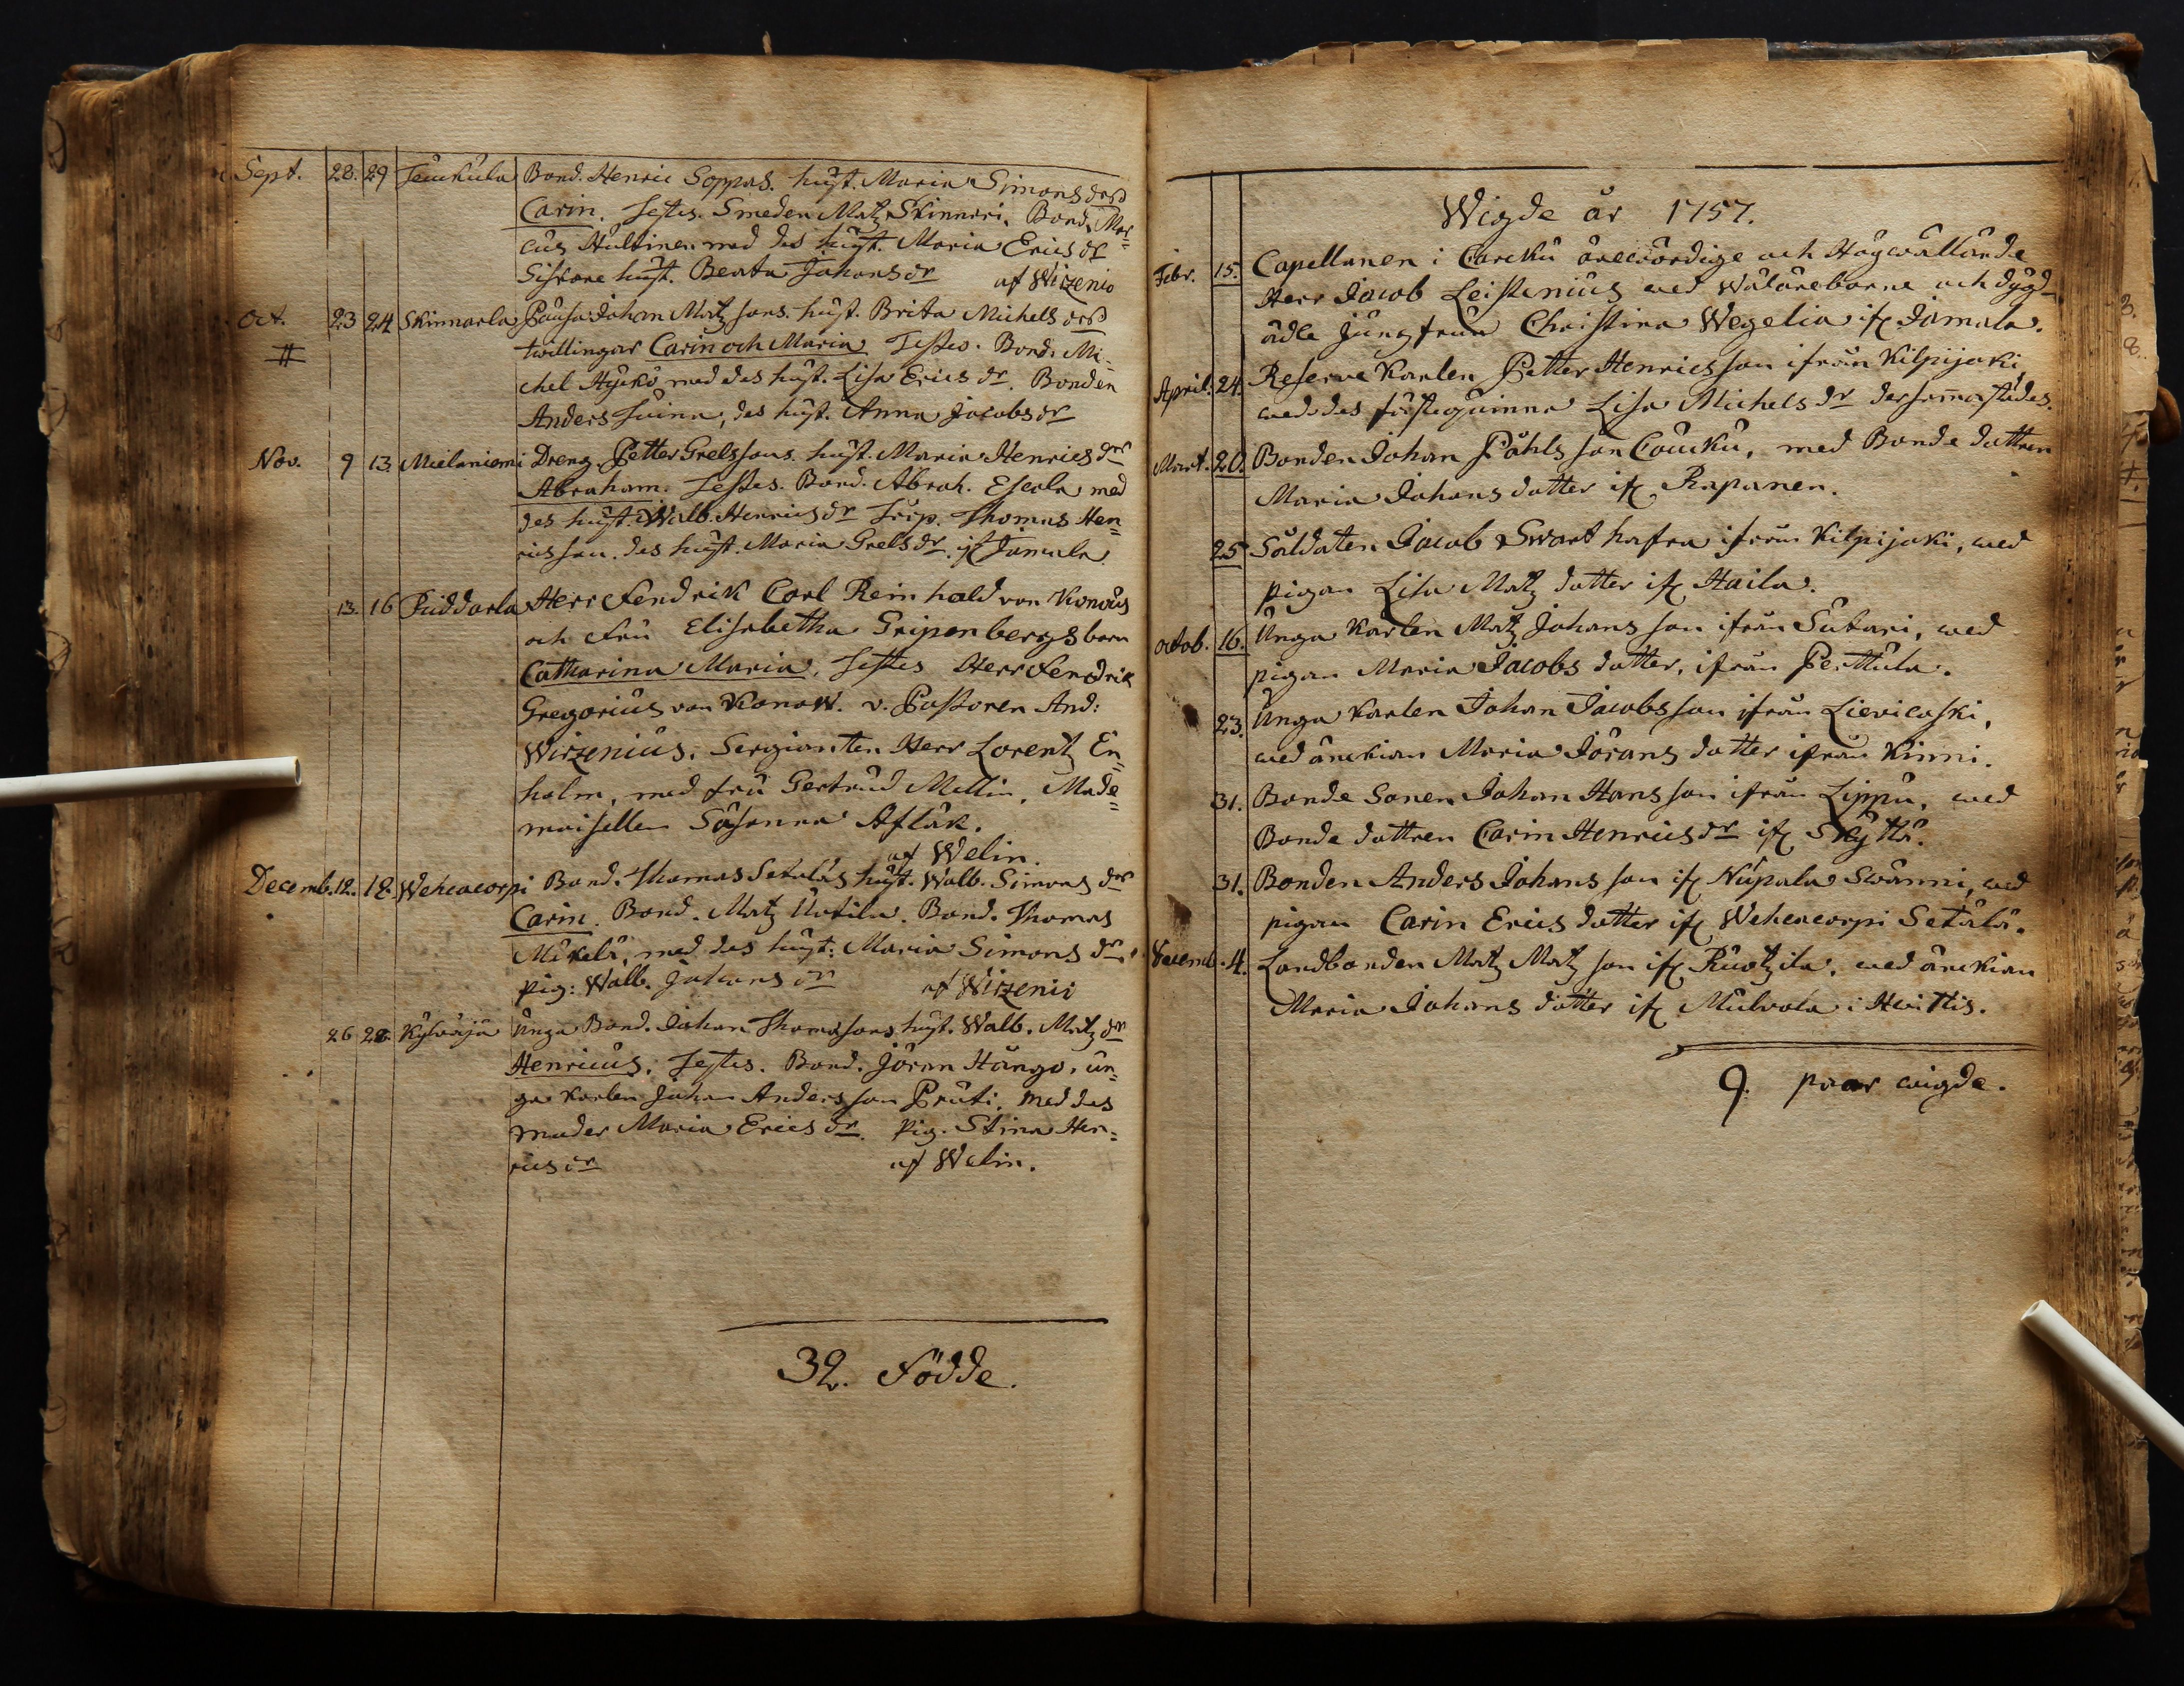 Sept. 28. 29 Bond. Henric Soppas. hust. Maria Simonsdr
Carin. Testes. Smeden Matz Skinnari. Bond. Mar=
cus Hultinen med des hust. Maria Ericsdr
hust. Beata Johansdr af Wirzenio
Oct. 23 24 Skinnarla Johan Matzsons. hust. Brita Michelsdr
# twillingar Carin och Maria Testes. Bond. Mi-
chel Hyckö med des hust. Lisa Ericsdr. Bonden
Anders des hust. Anna Jacobsdr
Nov. 9 13. Mielaniemi Dreng. Petter Grelssons. hust. Maria Henricsdr
Abraham. Testes. Bond. Abrah. Escola med
des hust. Walb. Henricsdr Thomas Hen=
ricsson. des hust. Maria Grelsdr. if Jamala
13. 16 Puiddarla Herr Fendrik Carl Reinhold von Konows
och Fru Elisabetha Gripenbergs barn
Catharina Maria, Testes Herr Fendrik
Gregorius von Konow. v. Pastoren And:
Wirzenius, Sergianten Herr Lorentz En=
holm, med fru Gertrud Mellin, Made=
moisellen Susanna
af Welin.
Decemb. 12. 18. Wehcacorpi Bond. Thomas Setäläs hust. Walb. Simonsdr
Carin. Bond. Matz Uotila. Bond. Thomas
Mikelä, med des hust: Maria Simonsdr
pig: Walb. Johansdr af Wirzenii
26 28. Kylväjä Unga Bond. Johan Thomassons hust. Walb. Matzdr
Henricus. Testes. Bond. Jöran Hango, un=
ga karlen Johan Andersson Pruti, med des
moder Maria Ericsdr. Pig. Stina Hen=
ricsdr af Welin.
32. Födde.
Wigde år 1757.
Febr. 15. Capellanen i Carcku ärewördige och Högwällärde
Herr Jacob Leistenius med Wälärebarne och dygd-
ädle jungfrun Christina Wegelia if Jamala.
April. 24. Reserve karlen Petter Henricsson ifrån Kilpijoki
med des fästeqvinna Lisa Michelsdr dersammastädes.
Mart. 20. Bonden Johan Påhlsson Coucku, med Bonde dottren
Maria Johansdotter if Rapanen.
25 Soldaten Jacob Swart hafra ifrån Kilpijoki, med
pigan Lisa Matzdotter if Haila.
Octob. 16. Unga karlen Matz Johansson ifrån Sutari, med
pigan Maria Jacobsdotter, ifrån Perttula.
23. Unga karlen Johan Jacobsson ifrån Lievicoski,
med änckian Maria Jöransdotter ifrån Kinni.
31. Bonde Sonen Johan Hansson ifrån Lippu, med
Bonde dottren Carin Henricsdr if Skyttä.
31. Bonden Anders Johansson if Nupala Swänni, med
pigan Carin Ericsdotter if Wehcacorpi Setälä.
Decemb. 4. Landbonden Matz Matzson if Ruotzila, med änckian
Maria Johansdotter if Mulvola i Hvittis.
9. paar wigde.